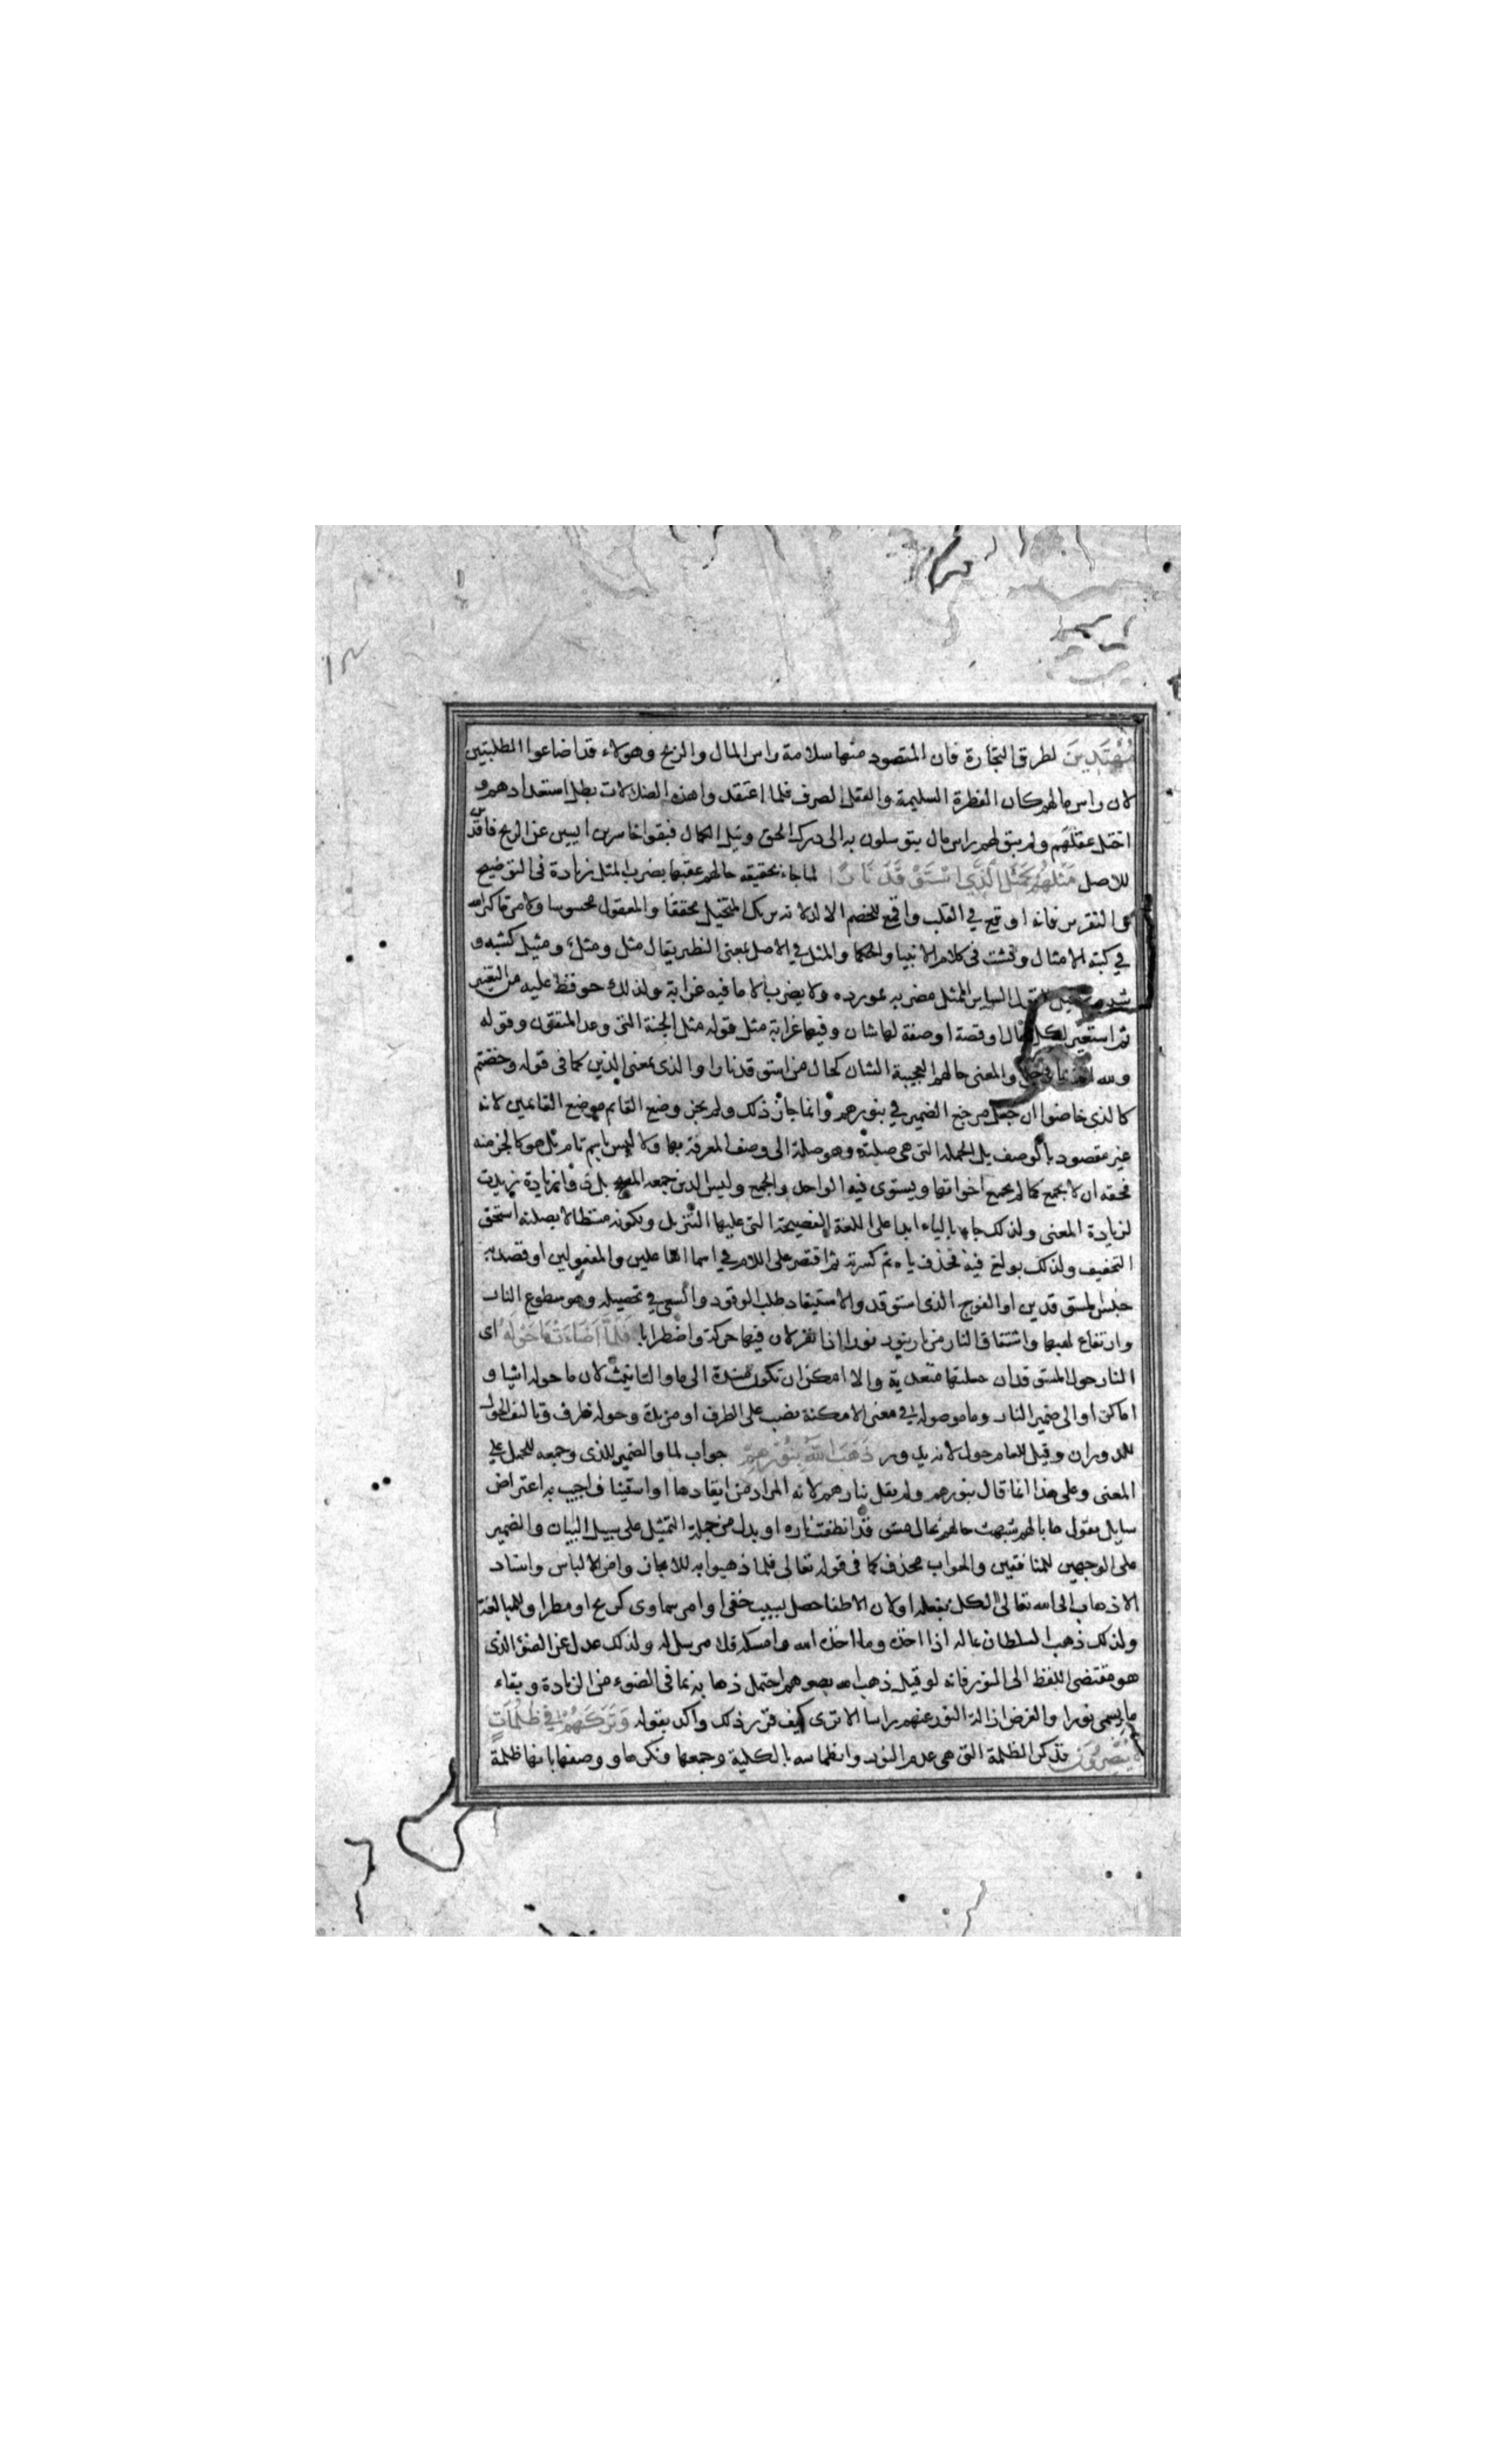 مُهْتَدِينَ لطرق التجارة فان المقصود منها سلامة راس المال والربح وهولاء قد اضاعوا الطلبتين
لان راس مالهم كان الفطرة السليمة والعقل الصرف فلما اعتقدوا هذه الضلالات بطل استعدادهم و
اختل عقلهم ولم يبق لهم راس مال يتوسلون به الى درك الحق ونيل الكمال فبقوا خاسرين ايسين عن الربح فاقدين
للاصل مَثَلُهُمْ كَمَثَلِ الَّذِي اسْتَوْقَدَ نَارًا لما جاء بحقيقه حالهم عقبها بضرب المثل زيادة فى التوضيح
والتقرير فانه اوقع في القلب واقمع للخصم الالد لانه يريك المتخيل محققا والمعقول محسوسا ولامر ما كثر الله
في كتبه الامثال وفشت فى كلام الانبيا والحكما والمثل في الاصل بمعنى النظير يقال مثل ومثل ومثيل كشبه و
للقول الساير الممثل مضربه بمورده ولا يضرب الا ما فيه غرابة ولذلك حوفظ عليه من التغير
ثم استعير لكل حال او قصة او صفة لها شان وفيها غرابة مثل قوله مثل الجنة التى وعد المتقون وقوله
ولله والمعنى حالهم العجيبة الشان كحال من استوقد نارا والذى بمعنى الذين كما فى قوله وخضتم
كالذى خاضوا ان جعل مرجع الضمير في بنورهم وانما جاز ذلك ولم يجز وضع القايم موضع القايمين لانه
غير مقصود بالوصف بل الجمله التى هى صلته وهو صلة الى وصف المعرفة بها ولا ليس باسم تام بل هو كالجز منه
فحقه ان لا يجمع كما لم يجمع اخواتها ويستوى فيه الواحد والجمع وليس الذين جمعه المصحح بل ذو زيادة زيدت
لزيادة المعنى ولذلك جاء بالياء ابدا على اللغة الفصيحة التى عليها التنزيل ولكونه مستطالا بصلته استحق
التخفيف ولذلك بولغ فيه فحذف ياه ثم كسرته ثم اقتصر على اللام في اسما الفاعلين والمفعولين او قصد به
جنس المستوقدين او الفوج الذى استوقد والاستيقاد طلب الوقود والسعى في تحصيله وهو سطوع النار
وارتفاع لهبها واشتقاق النار من نار ينور نورا اذا نفر لان فيها حركة واضطرابا فَلَمَّا أَضَاءَتْ مَا حَوْلَهُ اى
النار حول المستوقد ان جعلتها متعدية والا امكن ان تكون مسندة الى ما والتانيث لان ما حوله اشيا و
اماكن او الى ضمير النار وما موصوله في معنى الامكنة نصب على الظرف او مزيدة وحوله ظرف وتاليف الحول
للدوران وقيل للعام حول لانه يدور ذَهَبَ اللّهُ بِنُورِهِمْ جواب لما والضمير للذى وجمعه للحمل على
المعنى وعلى هذا انما قال بنورهم ولم يقل نارهم لانه المراد من ايقادها او استيناف اجيب به اعتراض
سايل يقول ما بالهم شبهت حالهم بحال مستوقد انطفت ناره او بدل من جملة التمثيل على سبيل البيان والضمير
على الوجهين للمنافقين والجواب محذوف كما فى قوله تعالى فلما ذهبوا به للايجاز وامن الالباس واسناد
الاذهاب الى الله تعالى لان الكل بفعله او لان الاطفا حصل بسبب خفى او امر سماوى كريح او مطر او للمبالغة
ولذلك ذهب السلطان بماله اذا اخذه وما اخذه الله وامسكه فلا مرسل له ولذلك عدل عن الضوء الذى
هو مقتضى اللفظ الى النور فانه لو قيل ذهب الله بضوهم احتمل ذهابه بما فى الضوء من الزيادة وبقاء
ما يسمى نورا والغرض ازالة النور عنهم راسا الا ترى كيف قرر ذلك واكده بقوله وَتَرَكَهُمْ فِي ظُلُمَاتٍ
لَا يُبْصِرُونَ فذكر الظلمة التى هى عدم النور وانطماسه بالكلية وجمعها ونكرها ووصفها بانها ظلمة